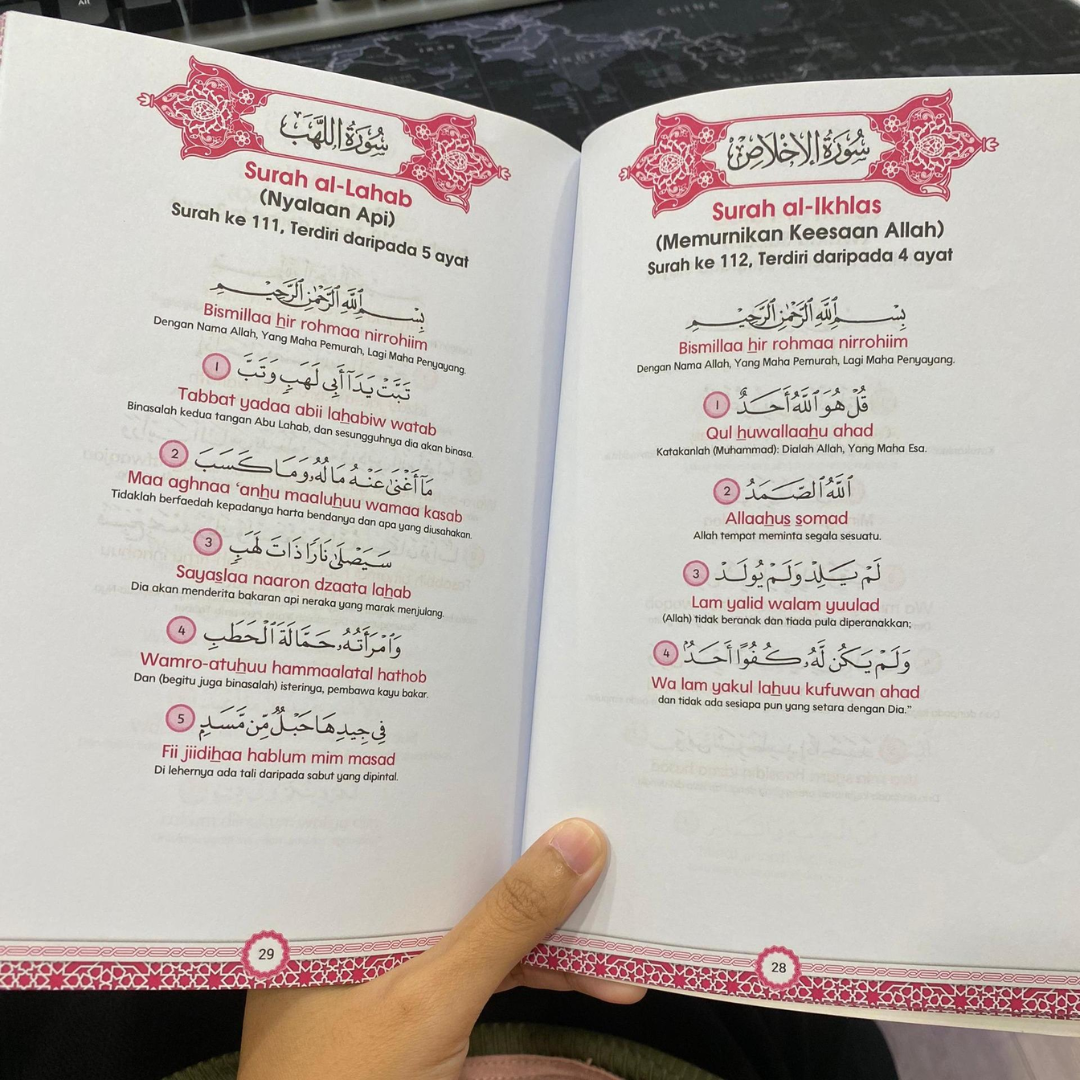 سُورَةُ الإِخْلَاصِ
Surah al-Ikhlas
(Memurnikan Keesaan Allah)
Surah ke 112, Terdiri daripada 4 ayat
بِسْمِ ٱللَّهِ ٱلرَّحْمَٰنِ ٱلرَّحِيمِ
Bismillaa hir rohmaa nirrohiim
Dengan Nama Allah, Yang Maha Pemurah, Lagi Maha Penyayang.
قُلْ هُوَ ٱللَّهُ أَحَدٌ 1
Qul huwallaahu ahad
Katakanlah (Muhammad): Dialah Allah, Yang Maha Esa.
ٱللَّهُ ٱلصَّمَدُ 2
Allaahus somad
Allah tempat meminta segala sesuatu.
لَمْ يَلِدْ وَلَمْ يُولَدْ 3
Lam yalid walam yuulad
(Allah) tidak beranak dan tiada pula diperanakkan;
وَلَمْ يَكُن لَّهُۥ كُفُوًا أَحَدٌۢ 4
Wa lam yakul lahuu kufuwan ahad
dan tidak ada sesiapa pun yang setara dengan Dia."
28
سُورَةُ اللَّهَبِ
Surah al-Lahab
(Nyalaan Api)
Surah ke 111, Terdiri daripada 5 ayat
بِسْمِ ٱللَّهِ ٱلرَّحْمَٰنِ ٱلرَّحِيمِ
Bismillaa hir rohmaa nirrohiim
Dengan Nama Allah, Yang Maha Pemurah, Lagi Maha Penyayang.
تَبَّتْ يَدَآ أَبِى لَهَبٍ وَتَبَّ 1
Tabbat yadaa abii lahabiw watab
Binasalah kedua tangan Abu Lahab, dan sesungguhnya dia akan binasa.
مَآ أَغْنَىٰ عَنْهُ مَالُهُۥ وَمَا كَسَبَ 2
Maa aghnaa ‘anhu maaluhuu wamaa kasab
Tidaklah berfaedah kepadanya harta bendanya dan apa yang diusahakan.
سَيَصْلَىٰ نَارًا ذَاتَ لَهَبٍ 3
Sayaslaa naaron dzaata lahab
Dia akan menderita bakaran api neraka yang marak menjulang.
وَٱمْرَأَتُهُۥ حَمَّالَةَ ٱلْحَطَبِ 4
Wamro-atuhuu hammaalatal hathob
Dan (begitu juga binasalah) isterinya, pembawa kayu bakar.
فِى جِيدِهَا حَبْلٌ مِّن مَّسَدٍۭ 5
Fii jiidihaa hablum mim masad
Di lehernya ada tali daripada sabut yang dipintal.
29
CHINA